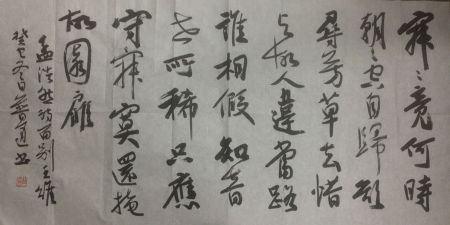 寂〻竟何待
朝〻空自歸欲
尋芳草去惜
与故人違當路
誰相假知音
世所稀只應
守寂寞還掩
故園扉
孟浩然詩留别王維
癸巳冬日道书